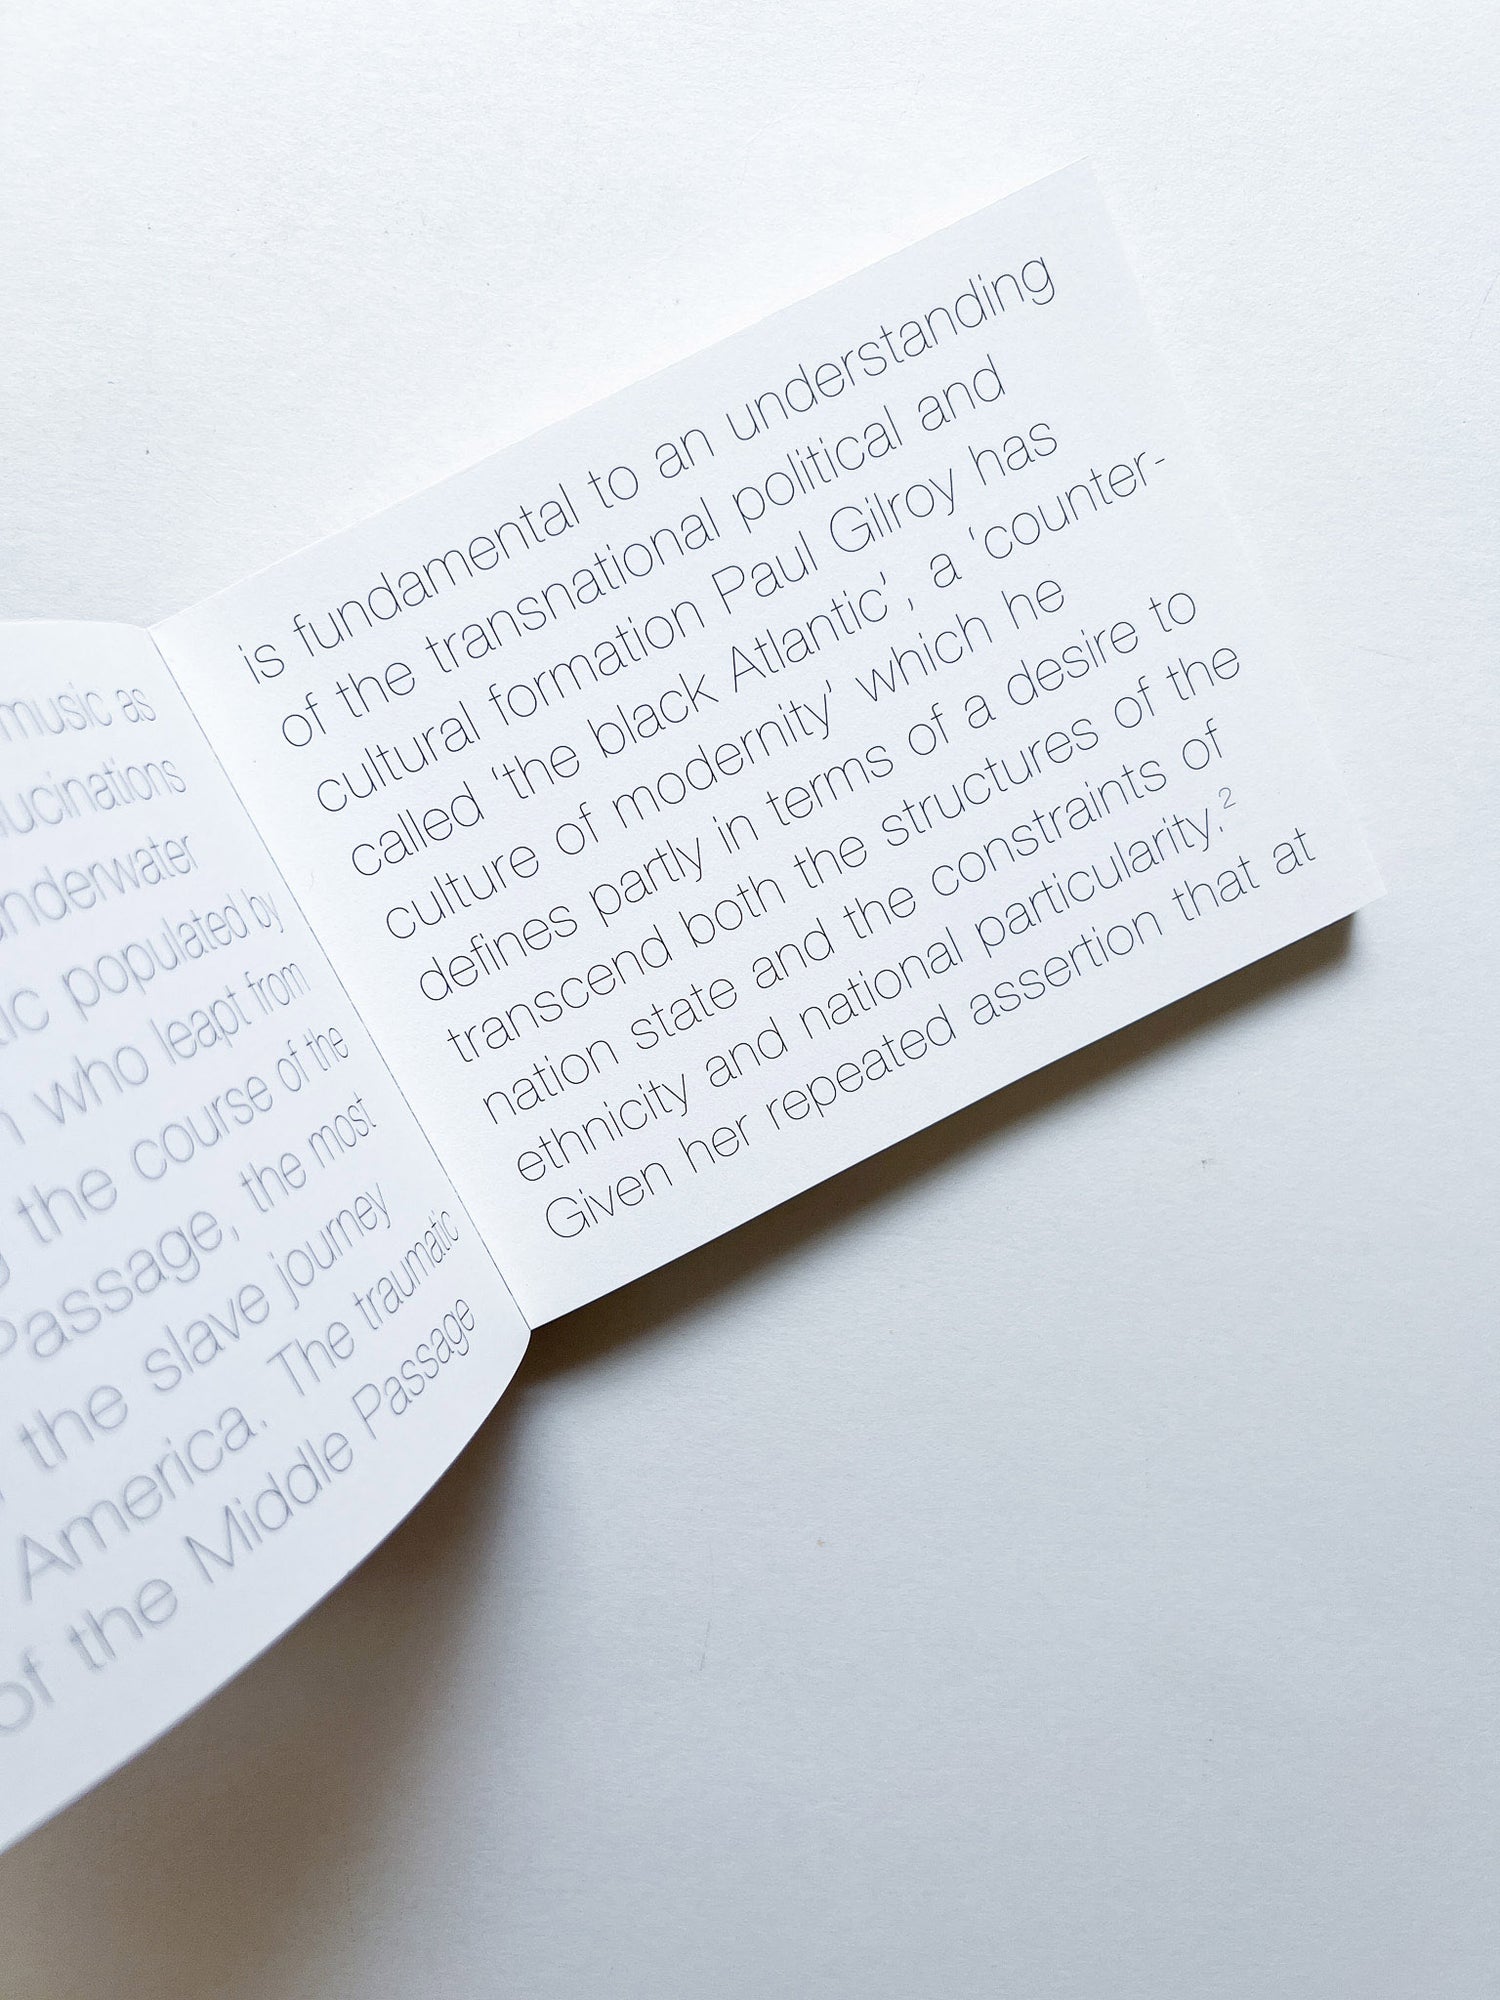 music as
lucinations
nderwater
tic populated by
who leapt from
the course of the
Passage, the most
the slave journey
America. The traumatic
of the Middle Passage
is fundamental to an understanding
of the transnational political and
cultural formation Paul Gilroy has
called ‘the black Atlantic’, a ‘counter-
culture of modernity’ which he
defines partly in terms of a desire to
transcend both the structures of the
nation state and the constraints of
ethnicity and national particularity.²
Given her repeated assertion that at